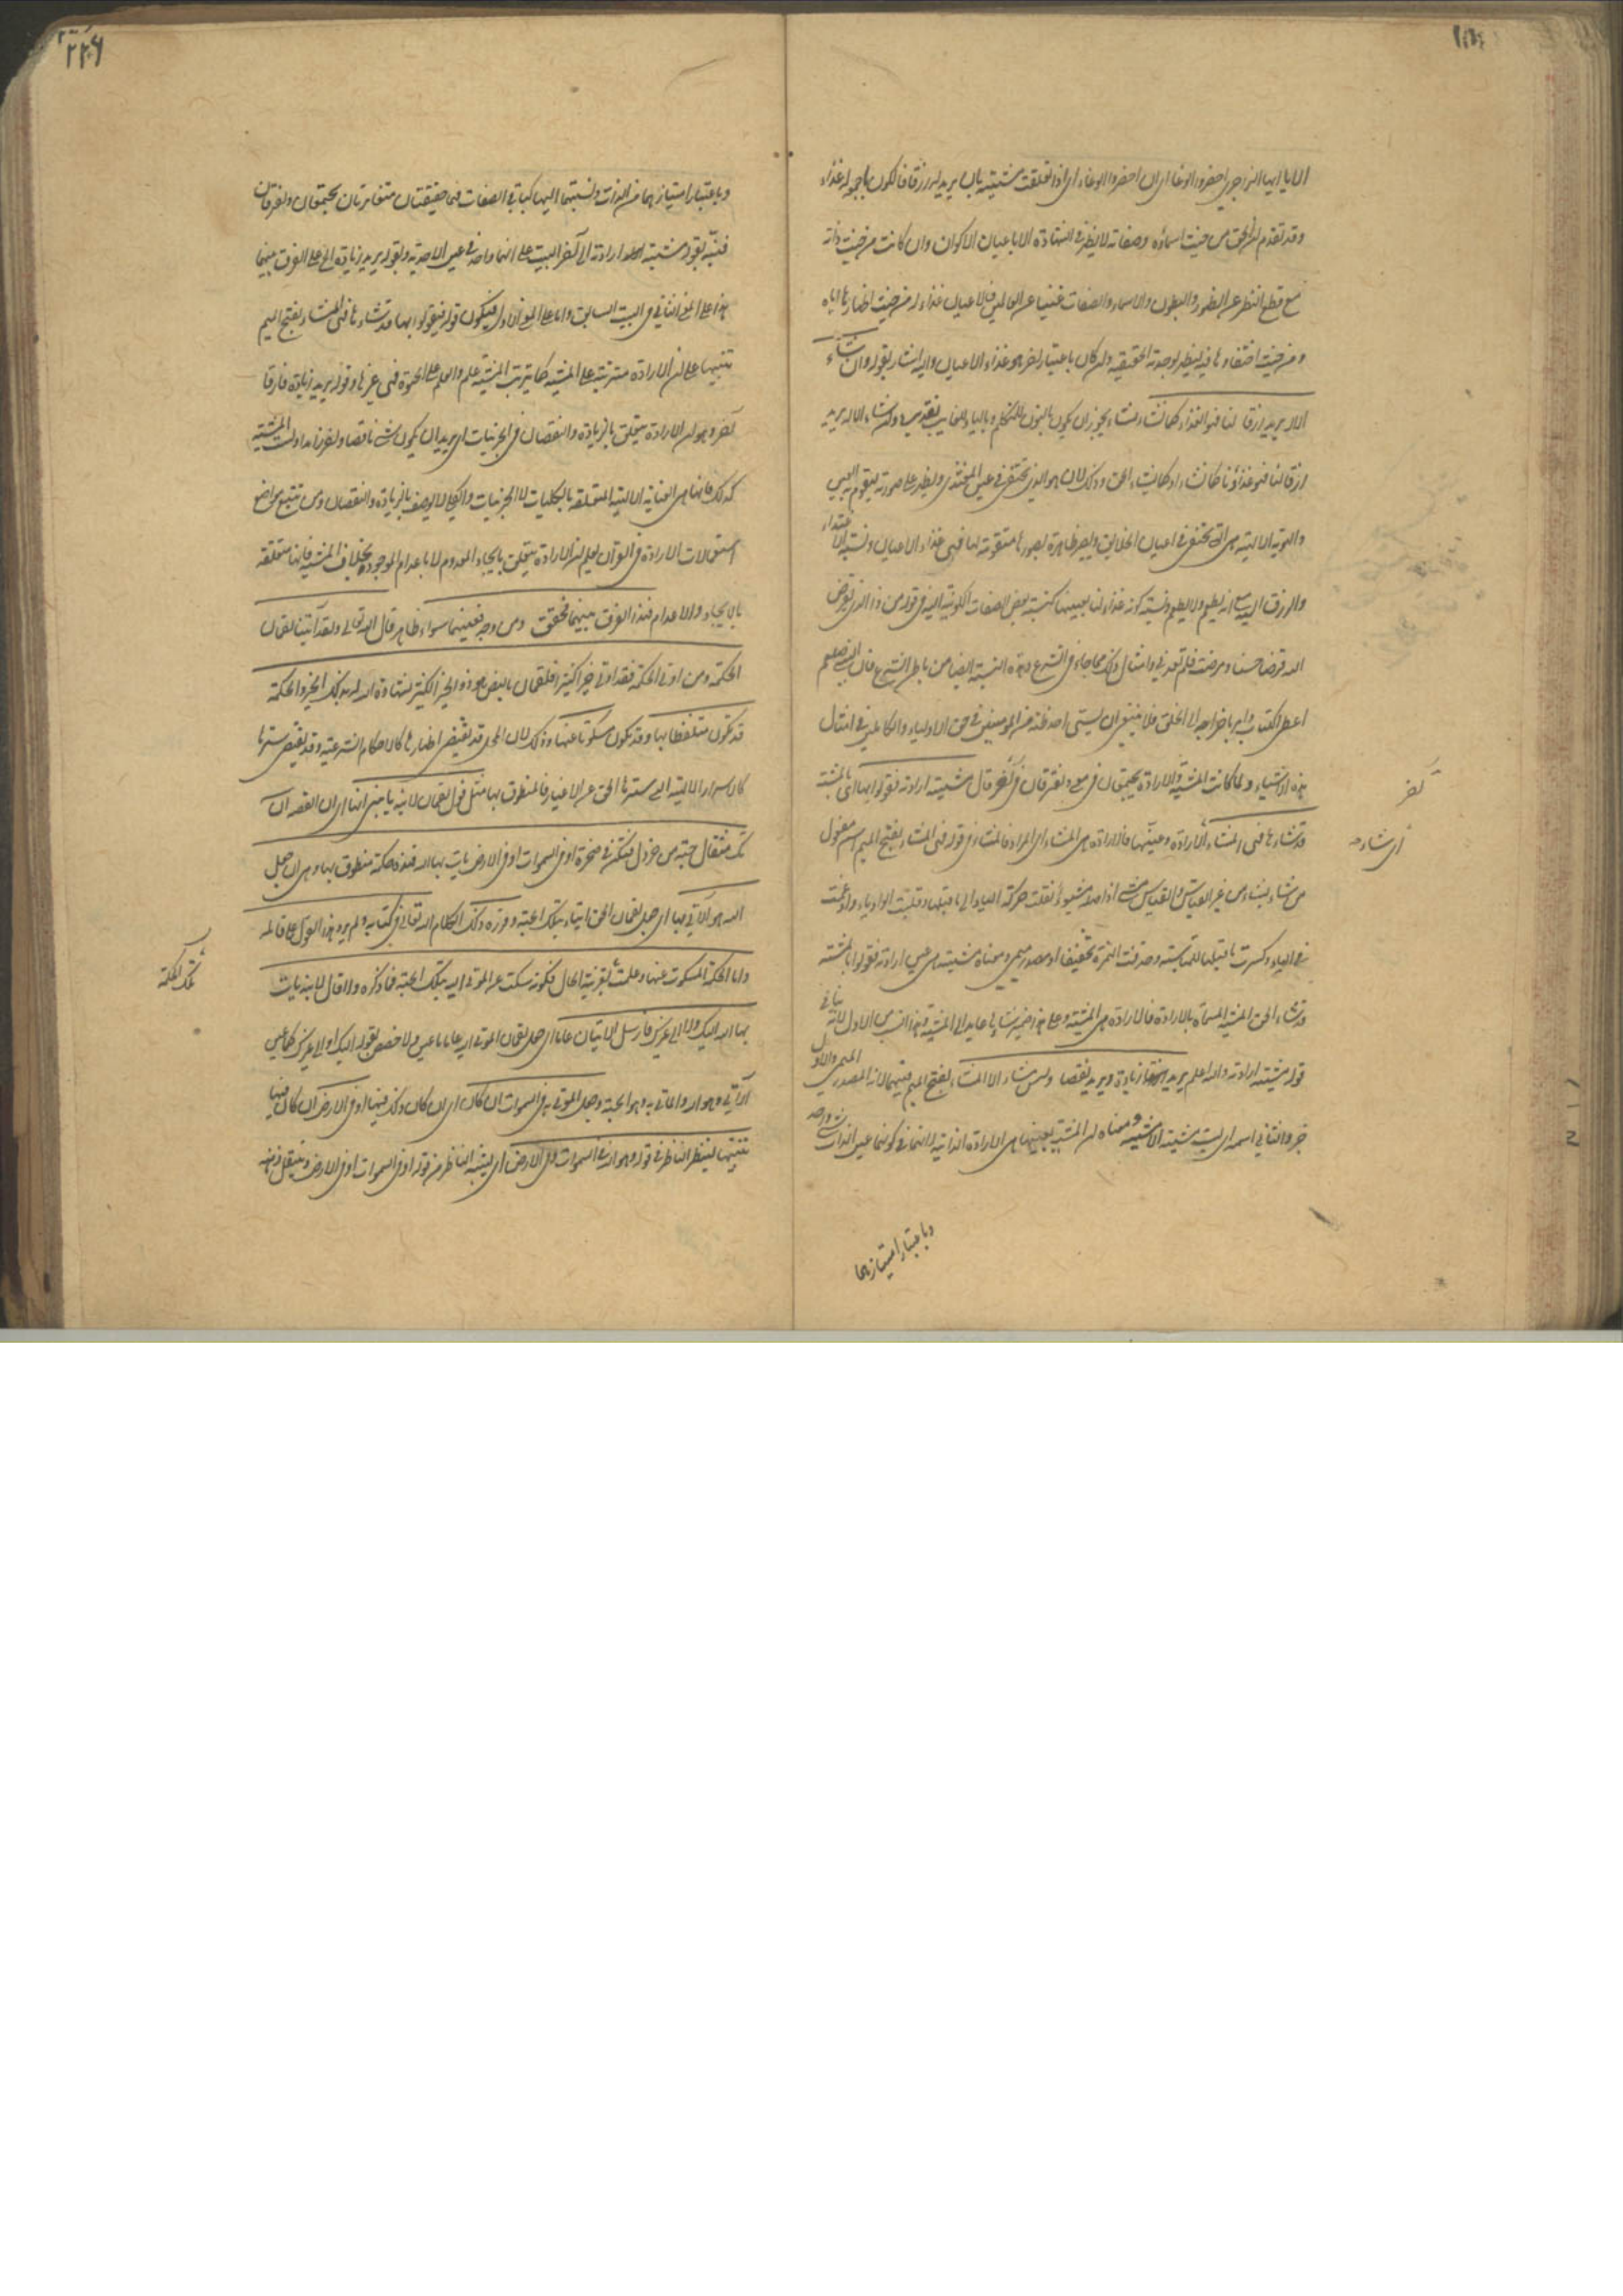 الا يا ايها الزاجري احضر الوغا اي ان احضر الوغاء اي اذا تعلقت مشيته بان يريد له رزقا فالكون باجمعه له غذاء
وقد تقدم ان الحق من حيث اسماؤه وصفاته لا يظهر في الشهادة الا باعيان الاكوان وان كانت من حيث ذاته
مع قطع النظر عن الظهور والبطون والاسماء والصفات غنيا عن العالمين فالاعيان غذاء له من حيث اظهارها اياه
ومن حيث اختفاؤها فيه ليظهر بوحدته الحقيقية وان كان باعتبار اخر هو غذاء الاعيان واليه اشار بقوله وان شاء
الاله يريد رزقا لنا فهو الغذاء كما نشاء نشاء يجوز ان يكون بالنون للمتكلم وبالياء للغايب تقديره وان شاء الاله يريد
ارزاقا لنا فهو غذاؤنا كما نشاء او كما يشاء الحق وذلك لان هو الذي يختفي في عين المغتذي ويظهر على صورته ليقوم به العين
والهوية الالهية هي التي تختفي في اعيان الخلائق ويصير ظاهرة بصورها مقومة لها فهي غذاء الاعيان ونسبة الاغتذاء
والرزق اليه مع انه يطعم ولا يطعم ونسبة كونه غذاء لنا بعينها كنسبة بعض الصفات الكونية اليه في قوله من ذا الذي يقرض
الله قرضا حسنا ومرضت فلم تعدني وامثال ذلك مما جاء في الشرع وهذه النسبة ايضا من باطن الشرع فان النبي صلعم
اعطى الكتاب وامر باخراجه الى الخلق فلا ينبغي ان يسيء احد ظنه من المؤمنين في حق الاولياء والكاملين في امثال
هذه الاشياء ولما كانت المشية والارادة يجتمعان في معنى ويفترقان في آخر قال مشيته ارادته فقولوا بها اي بالمشية
قد شاءها فهي المشاء الارادة وعينها فالارادة هي المشاء اي المراد فالمشاء في قوله فهي المشاء بفتح الميم اسم مفعول
آخر
اي شاءه
من شاء يشاء من غير القياس والقياس مشيء اذ اصله مشيوء نقلت حركة الياء الى ما قبلها وقلبت الواو ياء وادغمت
في الياء وكسرت ما قبلها للمناسبة وحذفت الهمزة تخفيفا او مصدر ميمي ومعناه مشيته هي عين ارادته فقولوا بالمشية
قد شاء الحق المشية المسماة بالارادة فالارادة هي المشية وعلى هذا ضمير شاءها عايد الى المشية وهذا انسب من الاول لانه يأتي في
قوله مشيته ارادته والله اعلم يريد زيادة ويريد نقصا وليس مشاءه الا المشاء بفتح الميم فيهما لانه المصدر الميمي والاول
خبر والثاني اسمه اي ليست مشيته الا المشية ومعناه ان المشية بعينها هي الارادة الذاتية لانهما في كونهما عين الذات شيء واحد
وباعتبار امتيازهما
٢٢٦
وباعتبار امتيازهما من الذات ونسبتهما اليها كباقي الصفات فهما حقيقتان متغايرتان يجتمعان ويفترقان
فنبه بقوله مشيته ارادته الى آخر البيت على انهما واحد في عين الاحدية وبقوله يريد زيادة الخ على الفرق بينهما
هذا على المعنى الثاني في البيت السابق واما على المعنى الاول فيكون قوله فقولوا بها قد شاءها فهي المشاء بفتح الميم
تنبيها على ان الارادة مترتبة على المشية كما يترتب المشية على العلم والعلم على الحيوة فهي غيرها وقوله يريد زيادة فارقا
آخر وهو ان الارادة يتعلق بالزيادة والنقصان في الجزئيات اي يريد ان يكون شيء ناقصا واخر زايدا وليست المشية
كذلك فانها هي العناية الالهية المتعلقة بالكليات لا الجزئيات والكلي لا يوصف بالزيادة والنقصان ومن تتبع مواضع
استعمالات الارادة في القرآن يعلم ان الارادة يتعلق بايجاد المعدوم لا باعدام الموجود بخلاف المشية فانها متعلقة
بالايجاد والاعدام فهذا الفرق بينهما محقق ومن وجه فعينهما سواء ظاهر قال الله تعالى ولقد آتينا لقمان
الحكمة ومن اوتي الحكمة فقد اوتي خيرا كثيرا فلقمان بالنص هو ذو الخير الكثير لشهادة الله له بذلك الخير والحكمة
قد تكون متلفظا بها وقد تكون مسكوتا عنها وذلك لان المحل قد يقتضي اظهارها كالاحكام الشرعية وقد يقتضي سترها
كالاسرار الالهية التي سترها الحق عن الاغيار فالمنطوق بها مثل قول لقمان لابنه يا بني انها اي ان القصة ان
تك مثقال حبة من خردل فتكن في صخرة او في السموات او في الارض يات بها الله فهذه حكمة منطوق بها وهي ان جعل
الله هو الآتي بها اي جعل لقمان الحق ايتاء بتلك الحبة وقرر ذلك الكلام الله تعالى في كتابه ولم يرد هذا القول على قائله
واما الحكمة المسكوت عنها وعلمت بقرينة الحال فكونه سكت عن المؤتى اليه بتلك الحبة فما ذكره ولا قال لابنه يات
تلك الحكمة
بها الله اليك ولا الى غيرك فارسل الاتيان عاما اي جعل لقمان المؤتى اليه عاما ما عين ولا خصص بقوله اليك او الى غيرك كما عين
الآتي وهو الله والماتي به وهو الحبة وجعل المؤتى به في السموات ان كان اي ان كان ذلك فيها او في الارض ان كان فيها
تنبيها لينظر الناظر في قوله وهو الله في السموات وفي الارض اي لينتبه الناظر من قوله او في السموات او في الارض وينتقل ذهنه